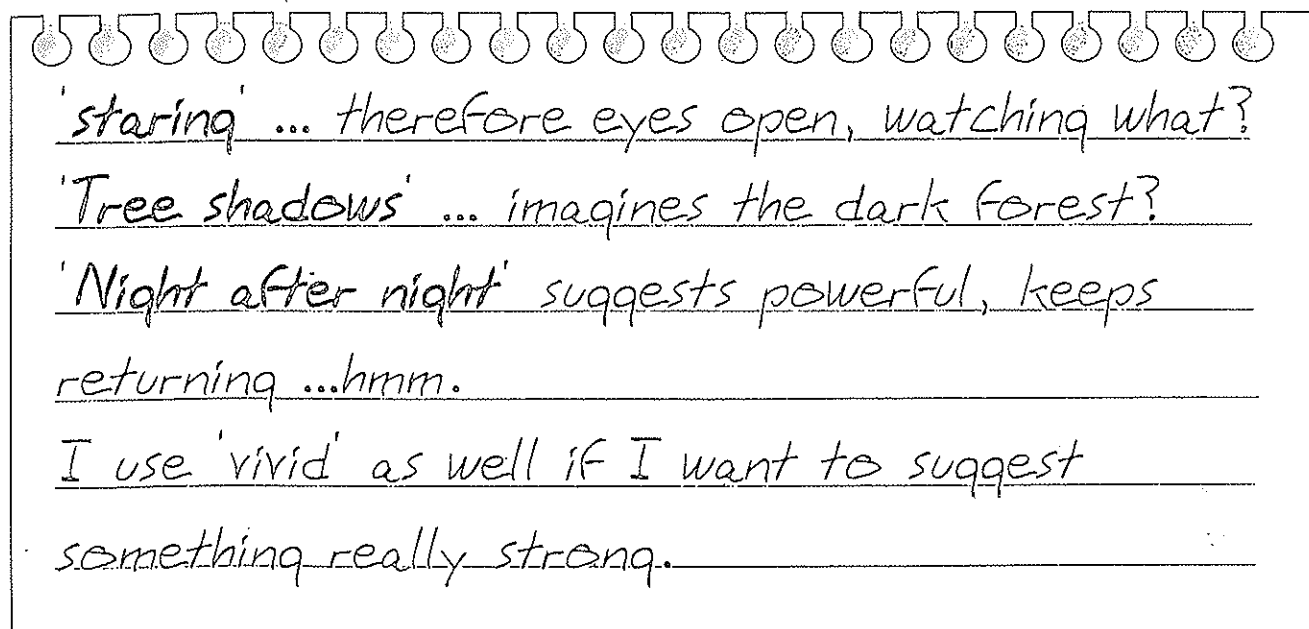 'staring' ... therefore eyes open, watching what?
'Tree shadows' ... imagines the dark forest?
'Night after night' suggests powerful, keeps
returning ...hmm.
I use 'vivid' as well if I want to suggest
something really strong.